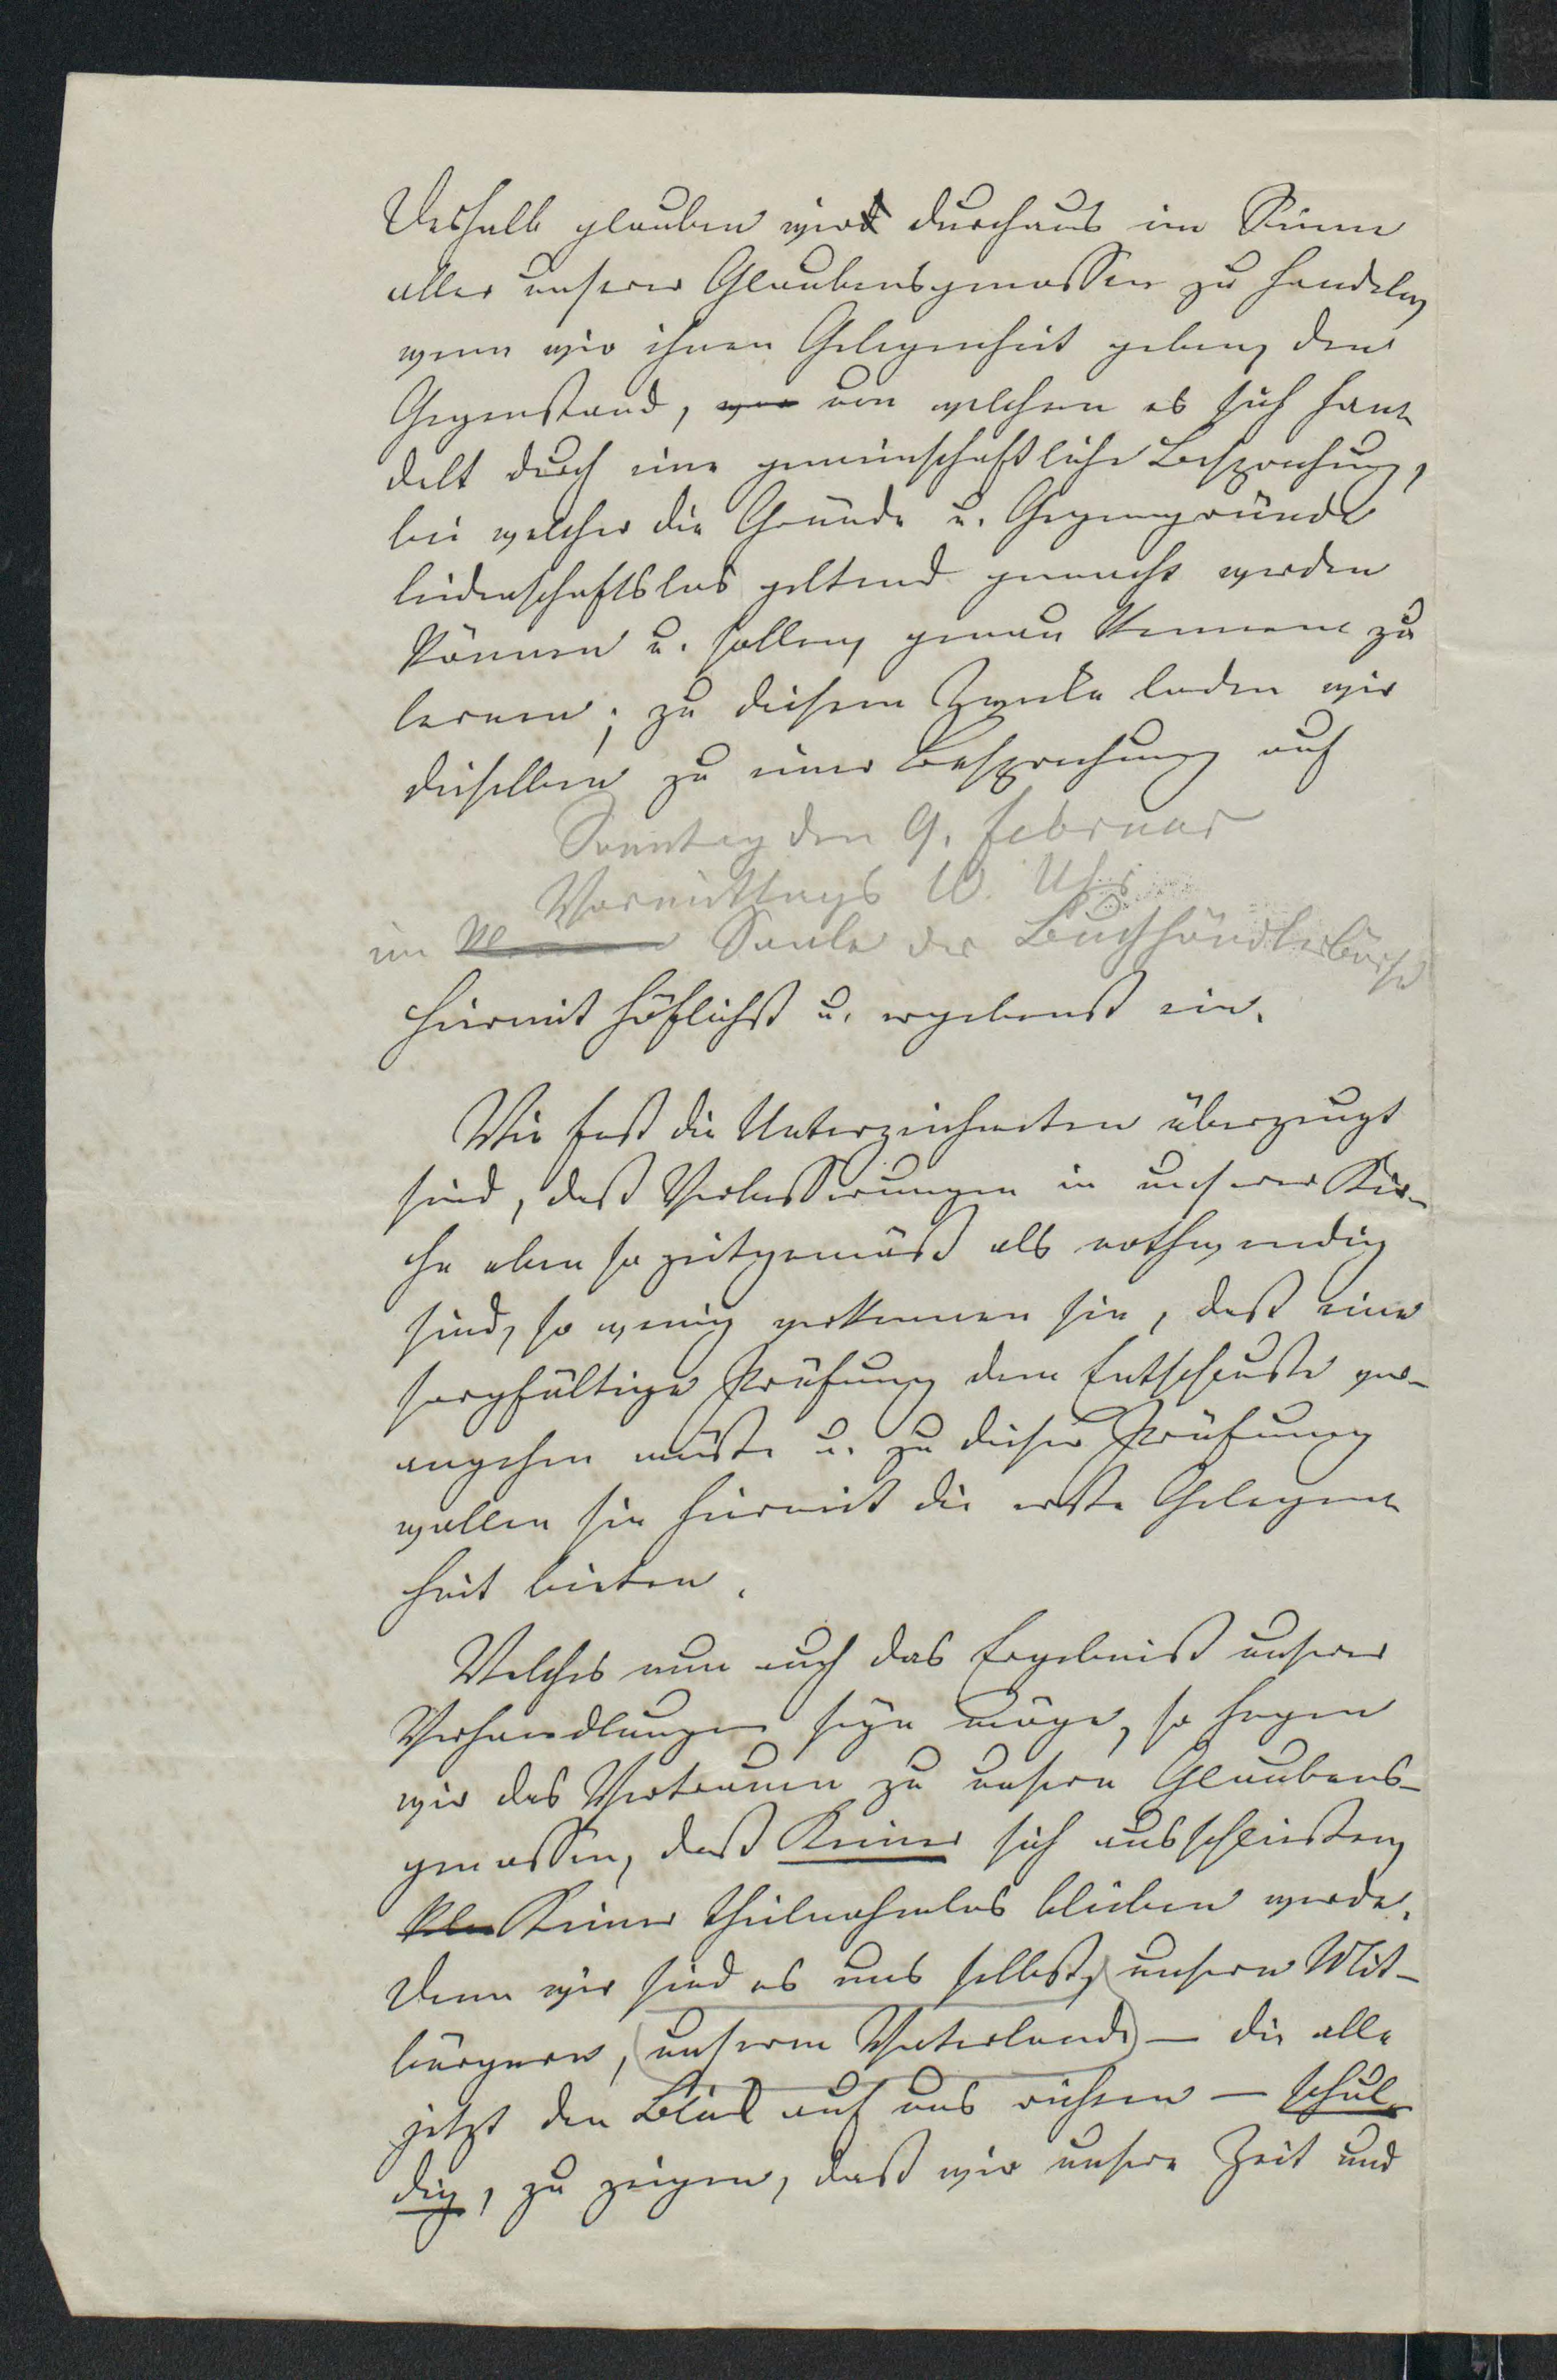 Deshalb glauben wir durchaus im Sinne
aller unserer Glaubensgenossen zu handeln,
wenn wir ihnen Gelegenheit geben, den
Gegenstand, von welchem es sich han-
delt durch eine gemeinschaftliche Besprechung,
bei welcher die Gründe u. Gegengründe
leidenschaftslos geltend gemacht werden
können u. sollen, genau kennen zu
lernen; zu diesem Zwecke laden wir
dieselben zu einer Besprechung auf
Sonntag den 9. Februar
Vormittags 10. Uhr
im Saale der Buchhändlerbörse
hiermit höflichst u. ergebenst ein.
Wie fest die Unterzeichneten überzeugt
sind, daß Verbesserungen in unserer Kir-
che eben so zeitgemäß als nothwendig
sind, so wenig verkennen sie, daß eine
sorgfältige Prüfung dem Entschlusse vor-
angehen müsse u. zu dieser Prüfung
wollen sie hiermit die erste Gelegen-
heit bieten.
Welches nun auch das Ergebniß unserer
Verhandlungen seyn möge, so hegen
wir das Vertrauen zu unsern Glaubens-
genossen, daß Keiner sich ausschließen,
Keiner theilnahmlos bleiben werde.
Denn wir sind es uns selbst, unsern Mit-
bürgern, unserm Vaterlande – die alle
jetzt den Blick auf uns richten – schul-
dig, zu zeigen, daß wir unsere Zeit und